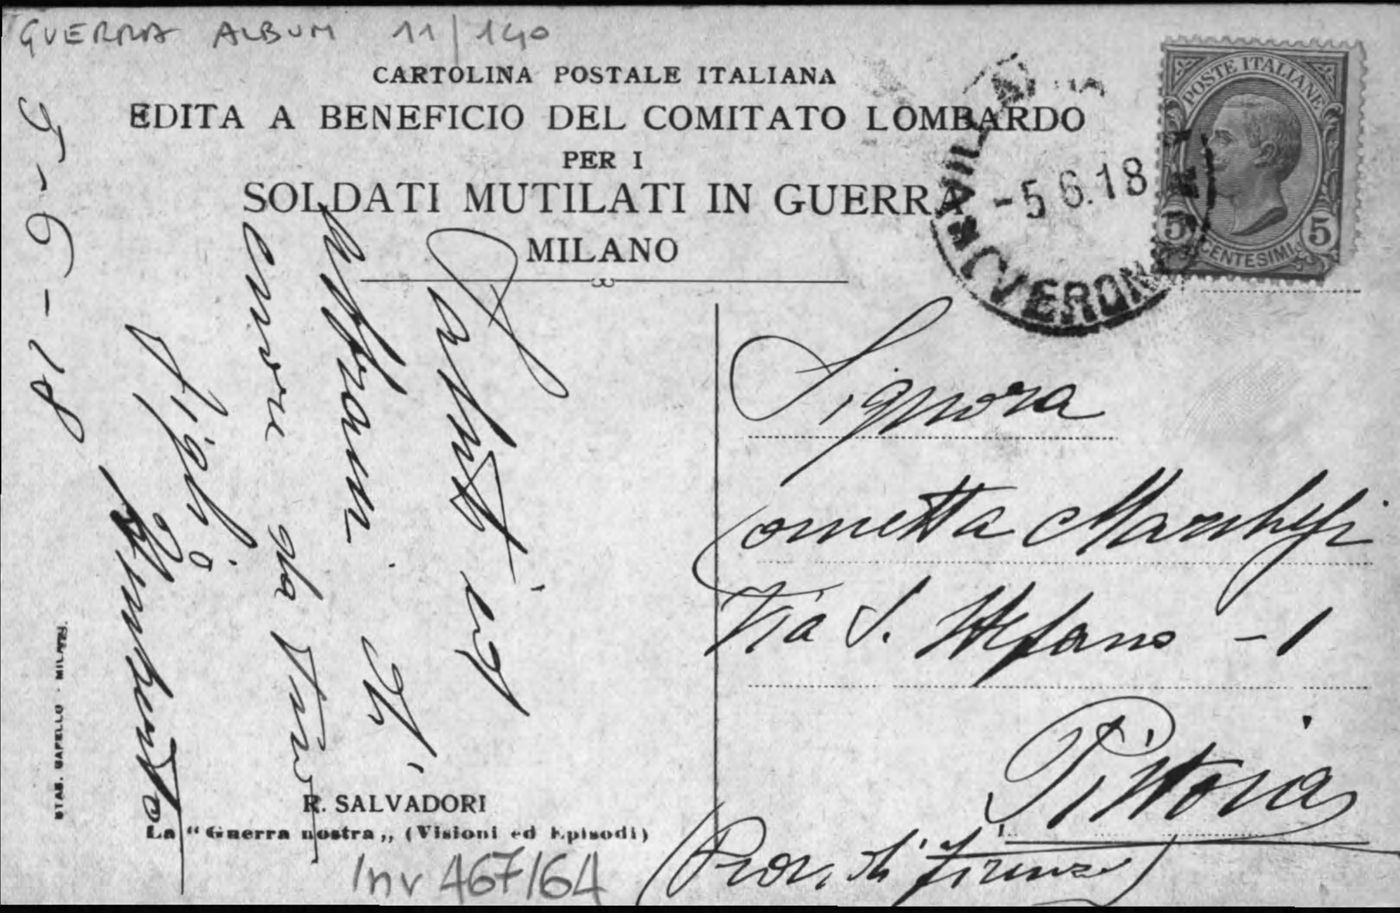 GUERRA ALBUM 11/140
CARTOLINA POSTALE ITALIANA
EDITA A BENEFICIO DEL COMITATO LOMBARDO
PER I
SOLDATI MUTILATI IN GUERRA
MILANO
POSTE ITALIANE
5 CENTESIMI 5
-5.6.18
VERONA
5-6-18
Saluti ed
affettuosi
cuore da
Armando
Signora
Cornetta Marchesi
Via S. Stefano - 1
Pistoia
(Prov. di Firenze)
STAB. CAPELLO - MILANO.
R. SALVADORI
La "Guerra nostra„ (Visioni ed Episodi)
Inv 467/64